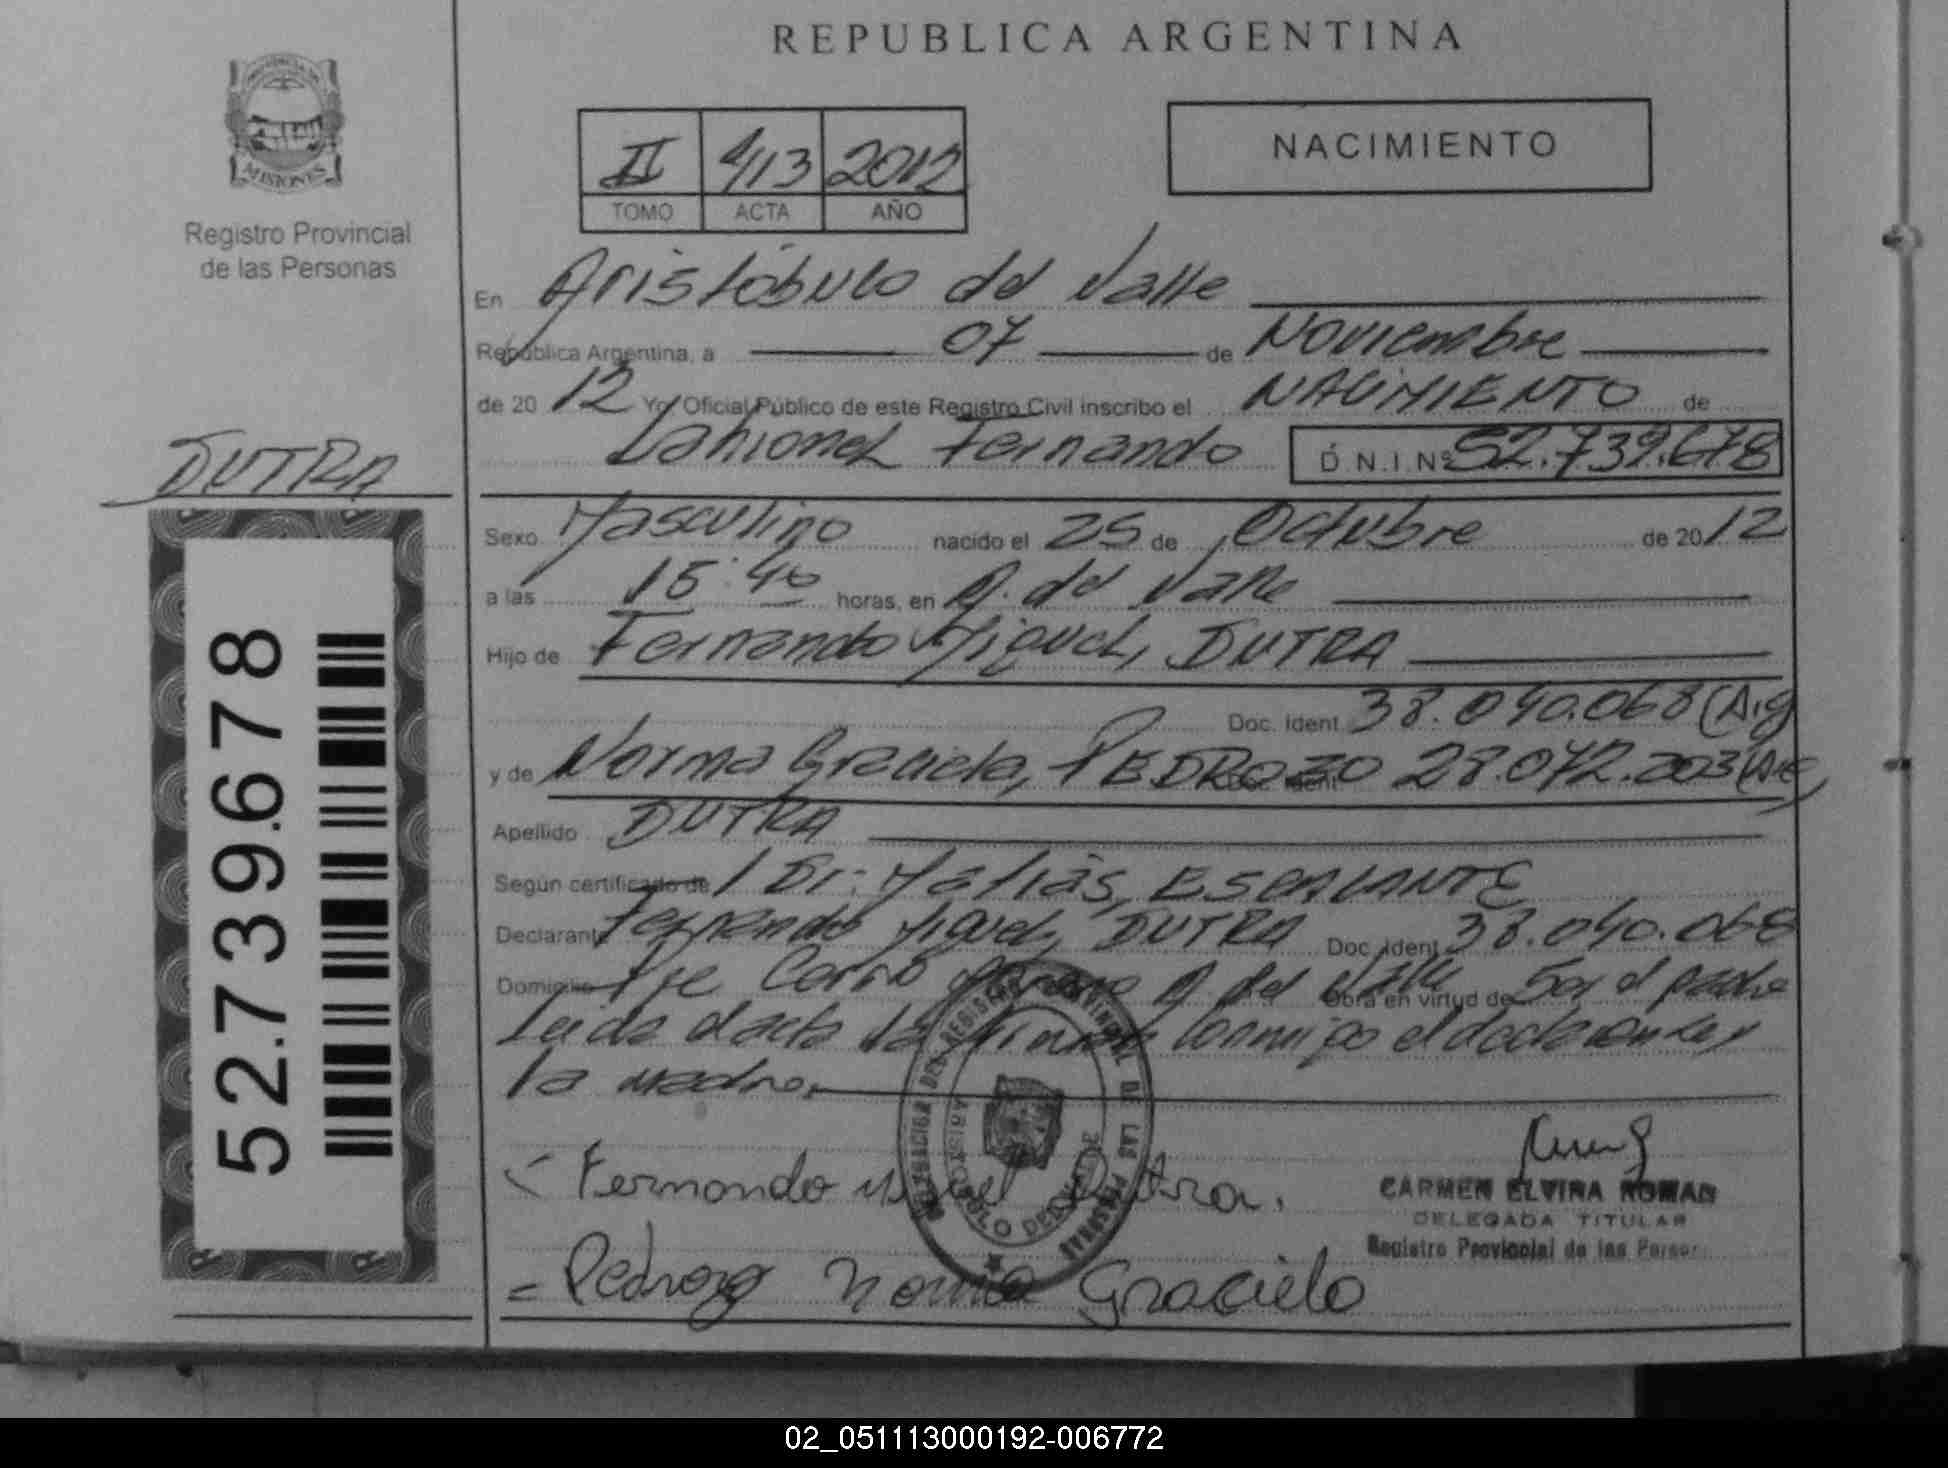 REPUBLICA ARGENTINA
PROVINCIA DE
MISIONES
Registro Provincial
de las Personas
II 413 2012
TOMO ACTA AÑO
NACIMIENTO
En Aristóbulo del Valle
República Argentina, a 07 de Noviembre
de 20 12 Yo, Oficial Público de este Registro Civil inscribo el NACIMIENTO de
Lahionel Fernando D.N.I.Nº 52.739.678
DUTRA
52.739.678
Sexo Masculino nacido el 25 de Octubre de 20 12
a las 15:40 horas, en A. del Valle
Hijo de Fernando Miguel, DUTRA
Doc. Ident. 38.040.068 (Arg
y de Norma Graciela, PEDROZO Doc. Ident. 28.072.203
Apellido DUTRA
Según certificado de Dr: Matías, ESCALANTE
Declarante Fernando Miguel, DUTRA Doc. Ident. 38.040.068
Domicilio Pje Cerro A. del Valle Obra en virtud de Ser el padre
Leida el acta la firman conmigo el declarante y
la madre.
DELEGACION DEL REGISTRO PROVINCIAL DE LAS PERSONAS
ARISTOBULO DEL VALLE
Fernando Miguel Dutra.
CARMEN ELVIRA ROMAN
DELEGADA TITULAR
Registro Provincial de las Person
= Pedrozo Norma Graciela
02_051113000192-006772